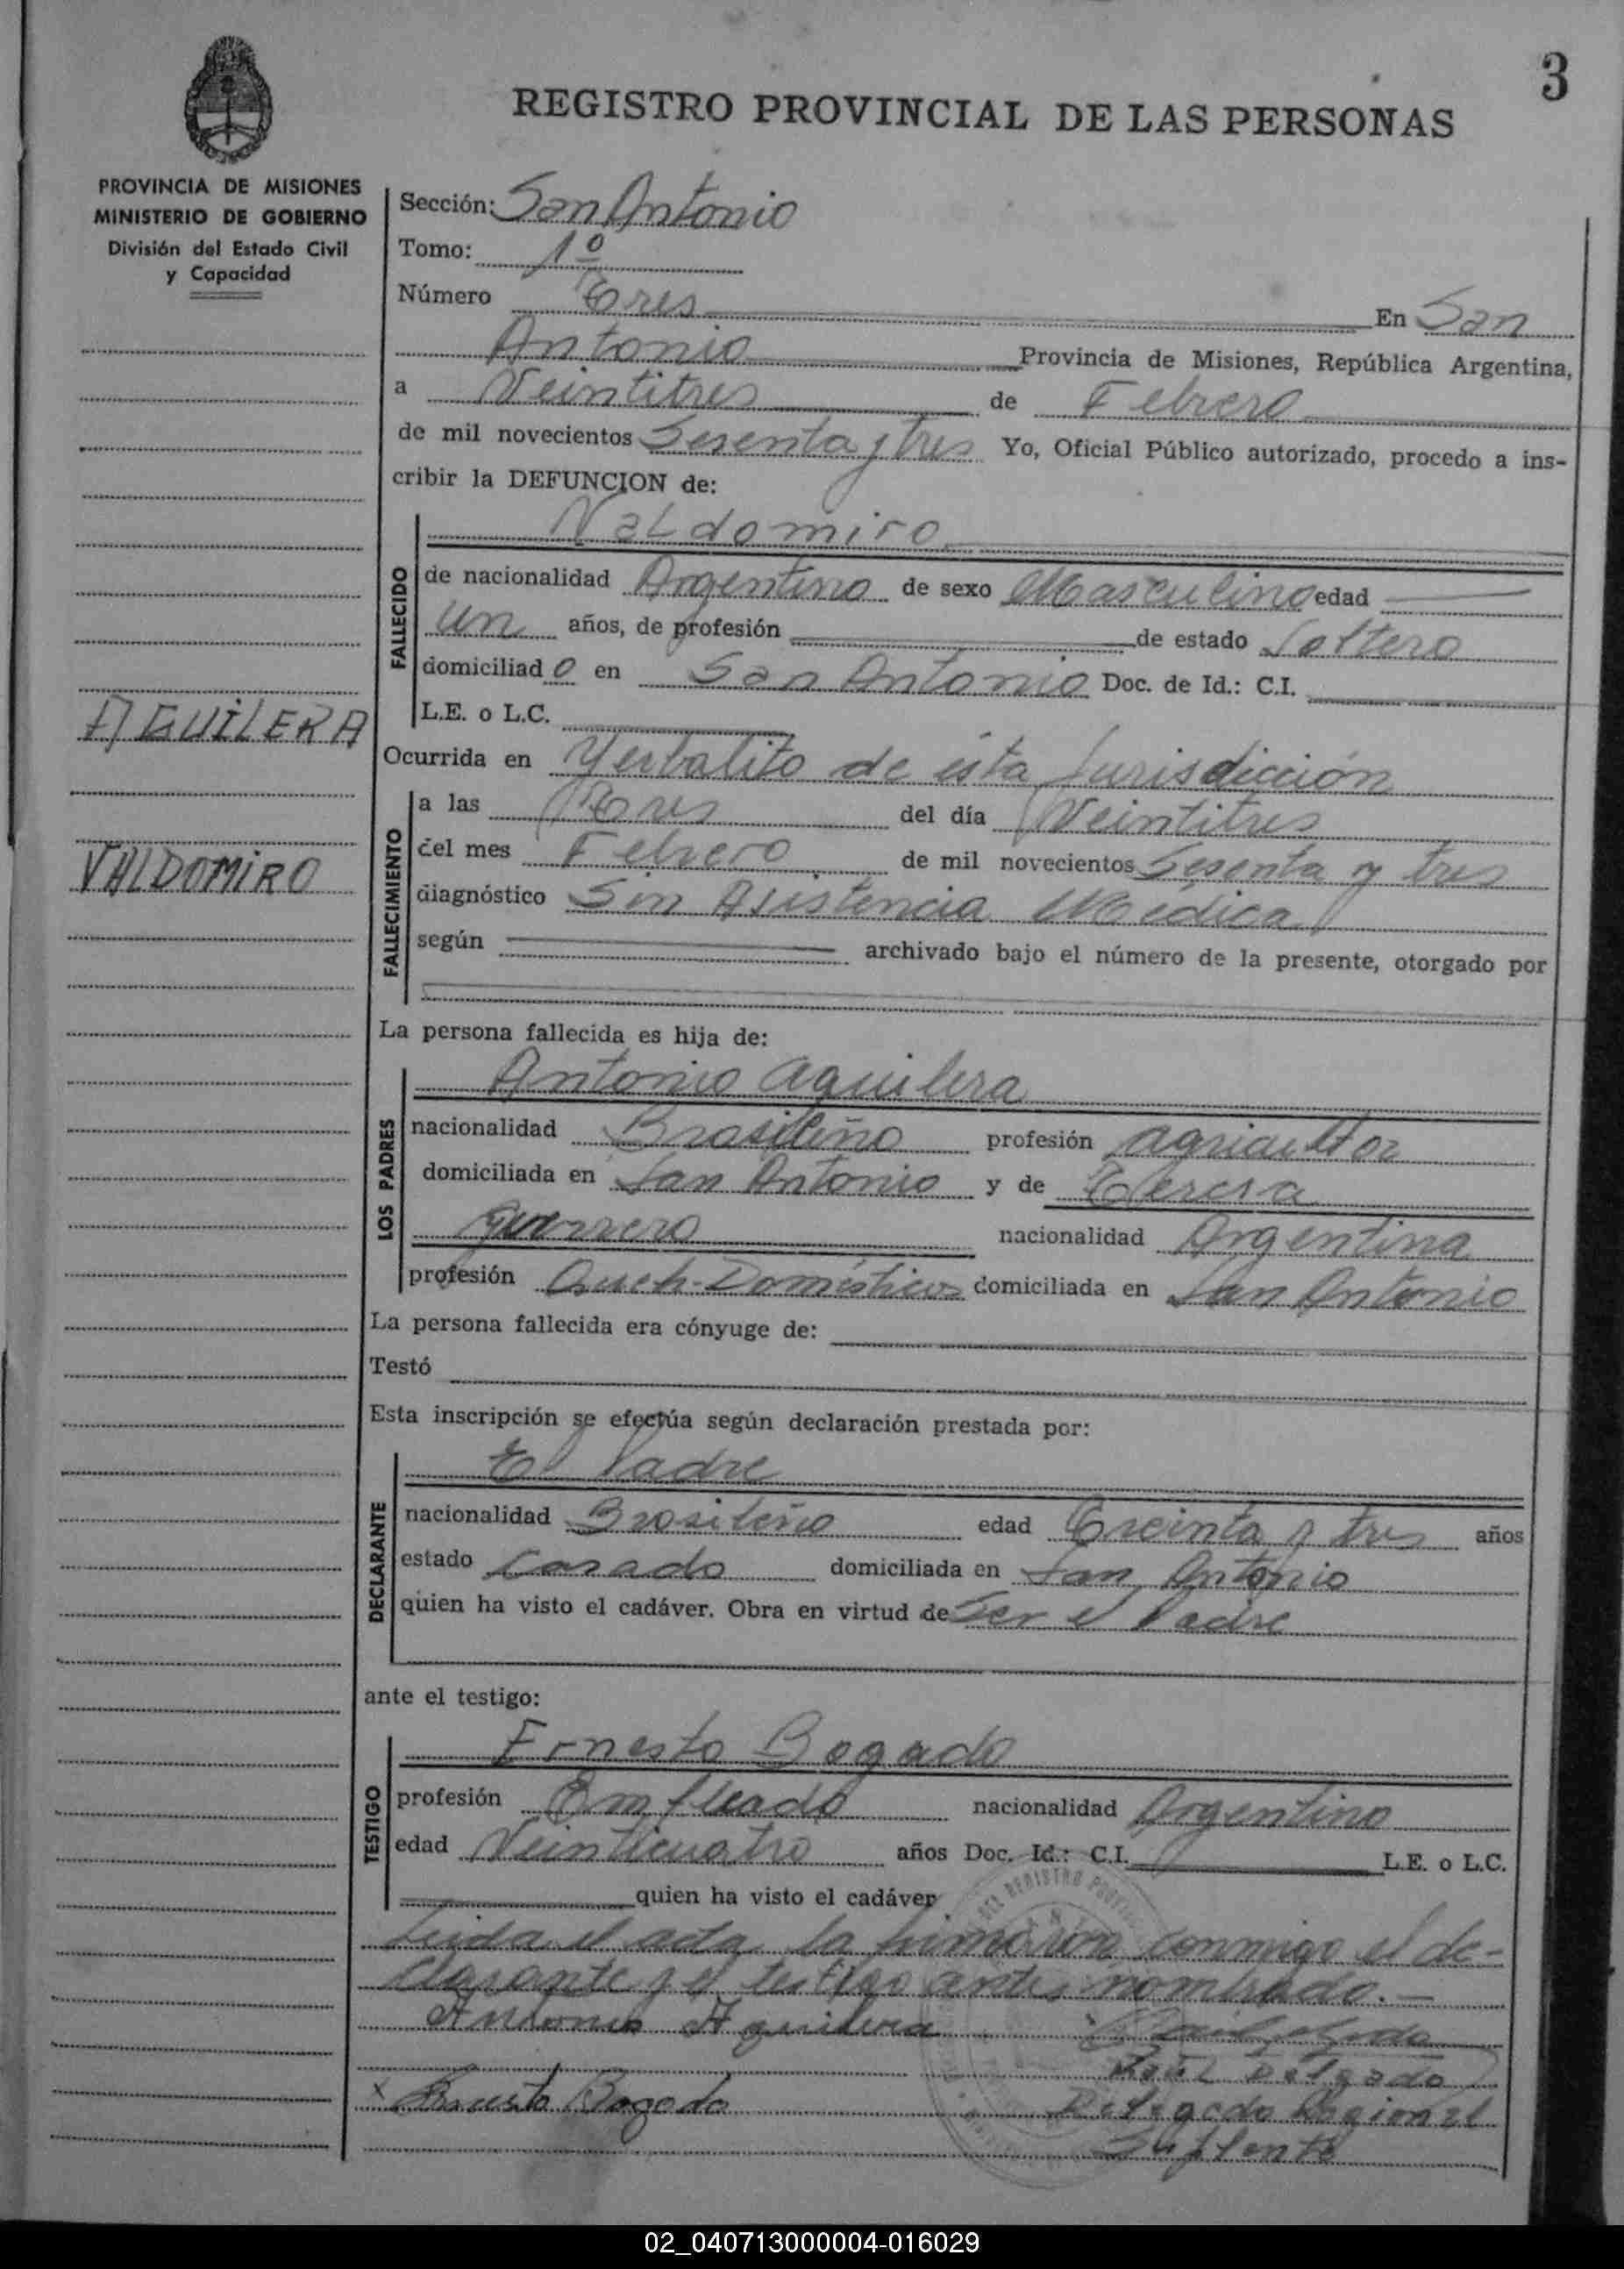 3
REGISTRO PROVINCIAL DE LAS PERSONAS
PROVINCIA DE MISIONES
MINISTERIO DE GOBIERNO
División del Estado Civil
y Capacidad
AGUILERA
VALDOMIRO
Sección: San Antonio
Tomo: 1º
Número Tres En San
Antonio Provincia de Misiones, República Argentina,
a Veintitres de Febrero
de mil novecientos Sesenta y tres Yo, Oficial Público autorizado, procedo a ins-
cribir la DEFUNCION de:
FALLECIDO
Valdomiro
de nacionalidad Argentino de sexo Masculino edad
un años, de profesión de estado Soltero
domiciliado en San Antonio Doc. de Id.: C.I.
L.E. o L.C.
Ocurrida en Yerbalito de ésta Jurisdicción
FALLECIMIENTO
a las Tres del día Veintitres
del mes Febrero de mil novecientos Sesenta y tres
diagnóstico Sin Asistencia Médica
según archivado bajo el número de la presente, otorgado por
La persona fallecida es hija de:
LOS PADRES
Antonio Aguilera
nacionalidad Brasileño profesión agricultor
domiciliada en San Antonio y de Teresa
Guerrero nacionalidad Argentina
profesión Queh-Domésticos domiciliada en San Antonio
La persona fallecida era cónyuge de:
Testó
Esta inscripción se efectúa según declaración prestada por:
DECLARANTE
El Padre
nacionalidad Brasileño edad Treinta y tres años
estado Casado domiciliada en San Antonio
quien ha visto el cadáver. Obra en virtud de Ser el Padre
ante el testigo:
TESTIGO
Ernesto Bogado
profesión Empleado nacionalidad Argentino
edad Veinticuatro años Doc. Id.: C.I. L.E. o L.C.
quien ha visto el cadáver
DEL REGISTRO PROVIN
Leida el acta la firmaron conmigo el de-
clarante y el testigo antes nombrado.-
Antonio Aguilera
Raúl Delgado
x Ernesto Bogado Delegado Regional
Suplente
02_040713000004-016029